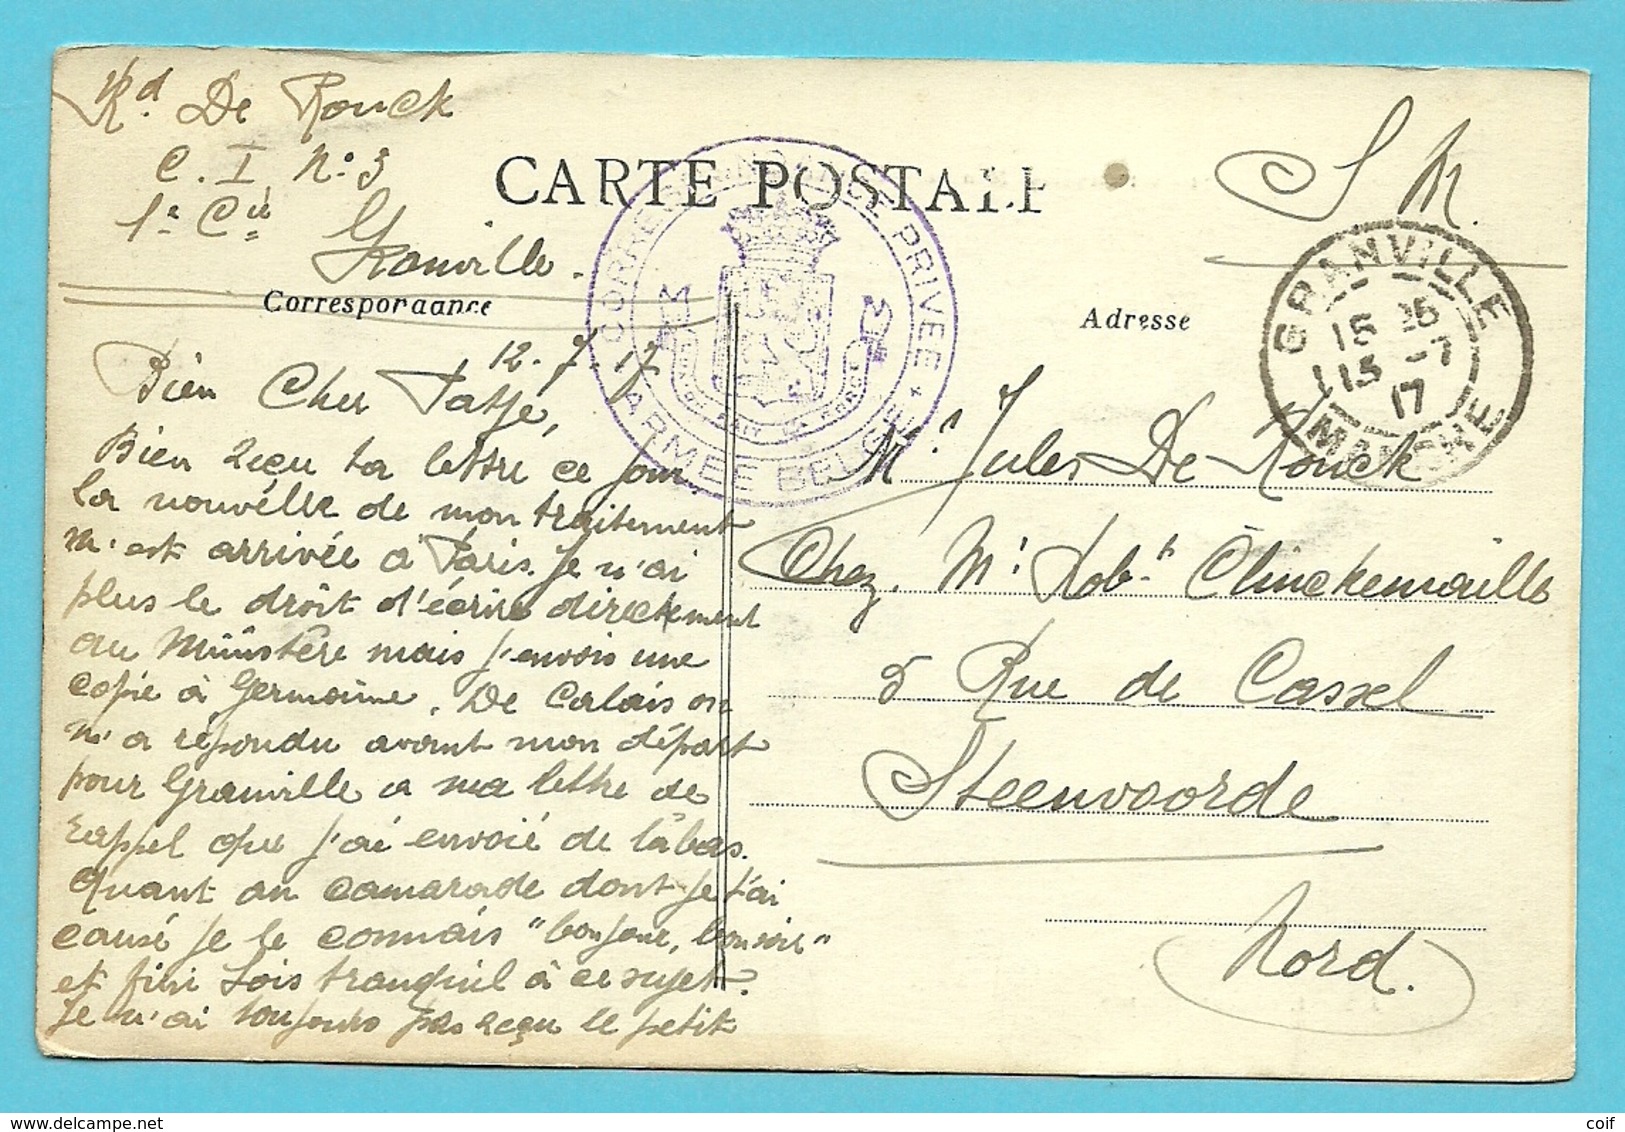 Rd. De Ronck
C. I. N° 3
1e Cie
Granville.
CARTE POSTALE
S M.
CORRESPONDANCE PRIVÉE
ARMÉE BELGE
GRANVILLE
15 25
13 -7
17
MANCHE
Correspondance
Adresse
12. 7. 17
Bien Cher Patje,
Bien reçu ta lettre ce jour.
la nouvelle de mon traitement
m'est arrivée à Paris. Je n'ai
plus le droit d'écrire directement
au Ministère mais j'envois une
copie à Germaine. De Calais on
m'a répondu avant mon départ
pour Granville a ma lettre de
rappel que j'ai envoié de làbas.
Quant au camarade dont je t'ai
causé je le connais "bonjour, bonsoir"
et fini sois tranquil à ce sujet.
Je n'ai toujours pas reçu le petit
Mr Jules De Ronck
Chez Mr Robt Clinckemaille
5 Rue de Cassel
Steenvoorde
Nord.
delcampe.net
coif